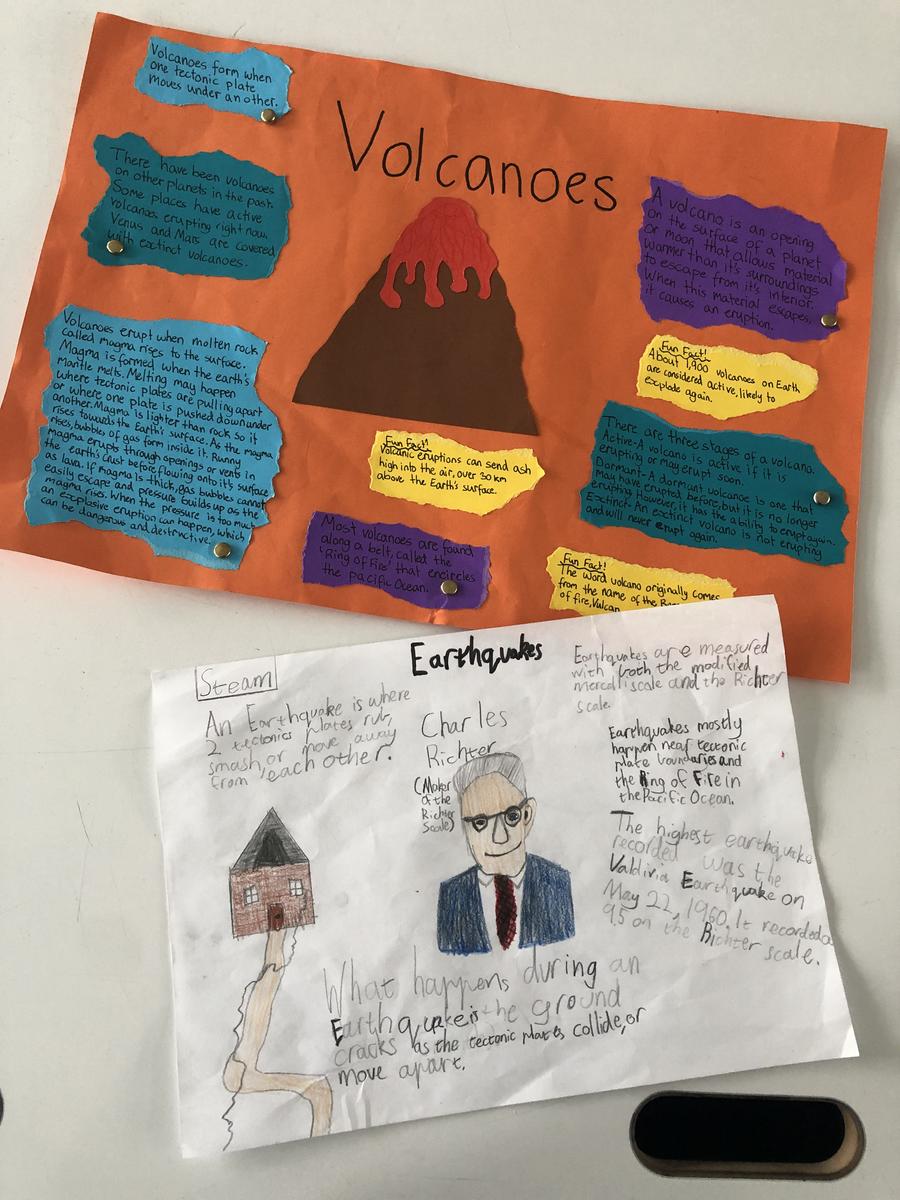 Volcanoes
Volcanoes form when
one tectonic plate
moves under another.
There have been volcanoes
on other planets in the past.
Some places have active
volcanoes erupting right now.
Venus and Mars are covered
with extinct volcanoes.
Volcanoes erupt when molten rock
called magma rises to the surface.
Magma is formed when the earth's
mantle melts. Melting may happen
where tectonic plates are pulling apart
or where one plate is pushed down under
another. Magma is lighter than rock so it
rises towards the Earth's surface. As the magma
rises, bubbles of gas form inside it. Runny
magma erupts through openings or vents in
the earth's crust before flowing onto it's surface
as lava. If magma is thick, gas bubbles cannot
easily escape and pressure builds up as the
magma rises. When the pressure is too much
an explosive eruption can happen, which
can be dangerous and destructive.
Fun Fact!
Volcanic eruptions can send ash
high into the air, over 30 km
above the Earth's surface.
Most volcanoes are found
along a belt, called the
'Ring of Fire' that encircles
the pacific Ocean.
A volcano is an opening
on the surface of a planet
or moon that allows material
warmer than it's surroundings
to escape from it's interior.
When this material escapes,
it causes an eruption.
Fun Fact!
About 1,900 volcanoes on Earth
are considered active, likely to
explode again.
There are three stages of a volcano.
Active-A volcano is active if it is
erupting or may erupt soon.
Dormant-A dormant volcano is one that
may have erupted before, but it is no longer
erupting. However, it has the ability to erupt again.
Extinct-An extinct volcano is not erupting
and will never erupt again.
Fun Fact!
The word volcano originally comes
from the name of the
of fire, Vulcan
Earthquakes
Steam
An Earthquake is where
2 tectonics plates rub,
smash or move away
from each other.
Charles
Richter
(Maker
of the
Richter
Scale)
Earthquakes are measured
with both the modified
mercalli scale and the Richter
scale.
Earthquakes mostly
happen near tectonic
plate boundaries and
the Ring of Fire in
the Pacific Ocean.
The highest earthquake
recorded was the
Valdivia Earthquake on
May 22, 1960. It recorded a
9.5 on the Richter scale.
What happens during an
Earthquake is the ground
cracks as the tectonic plates collide, or
move apart.